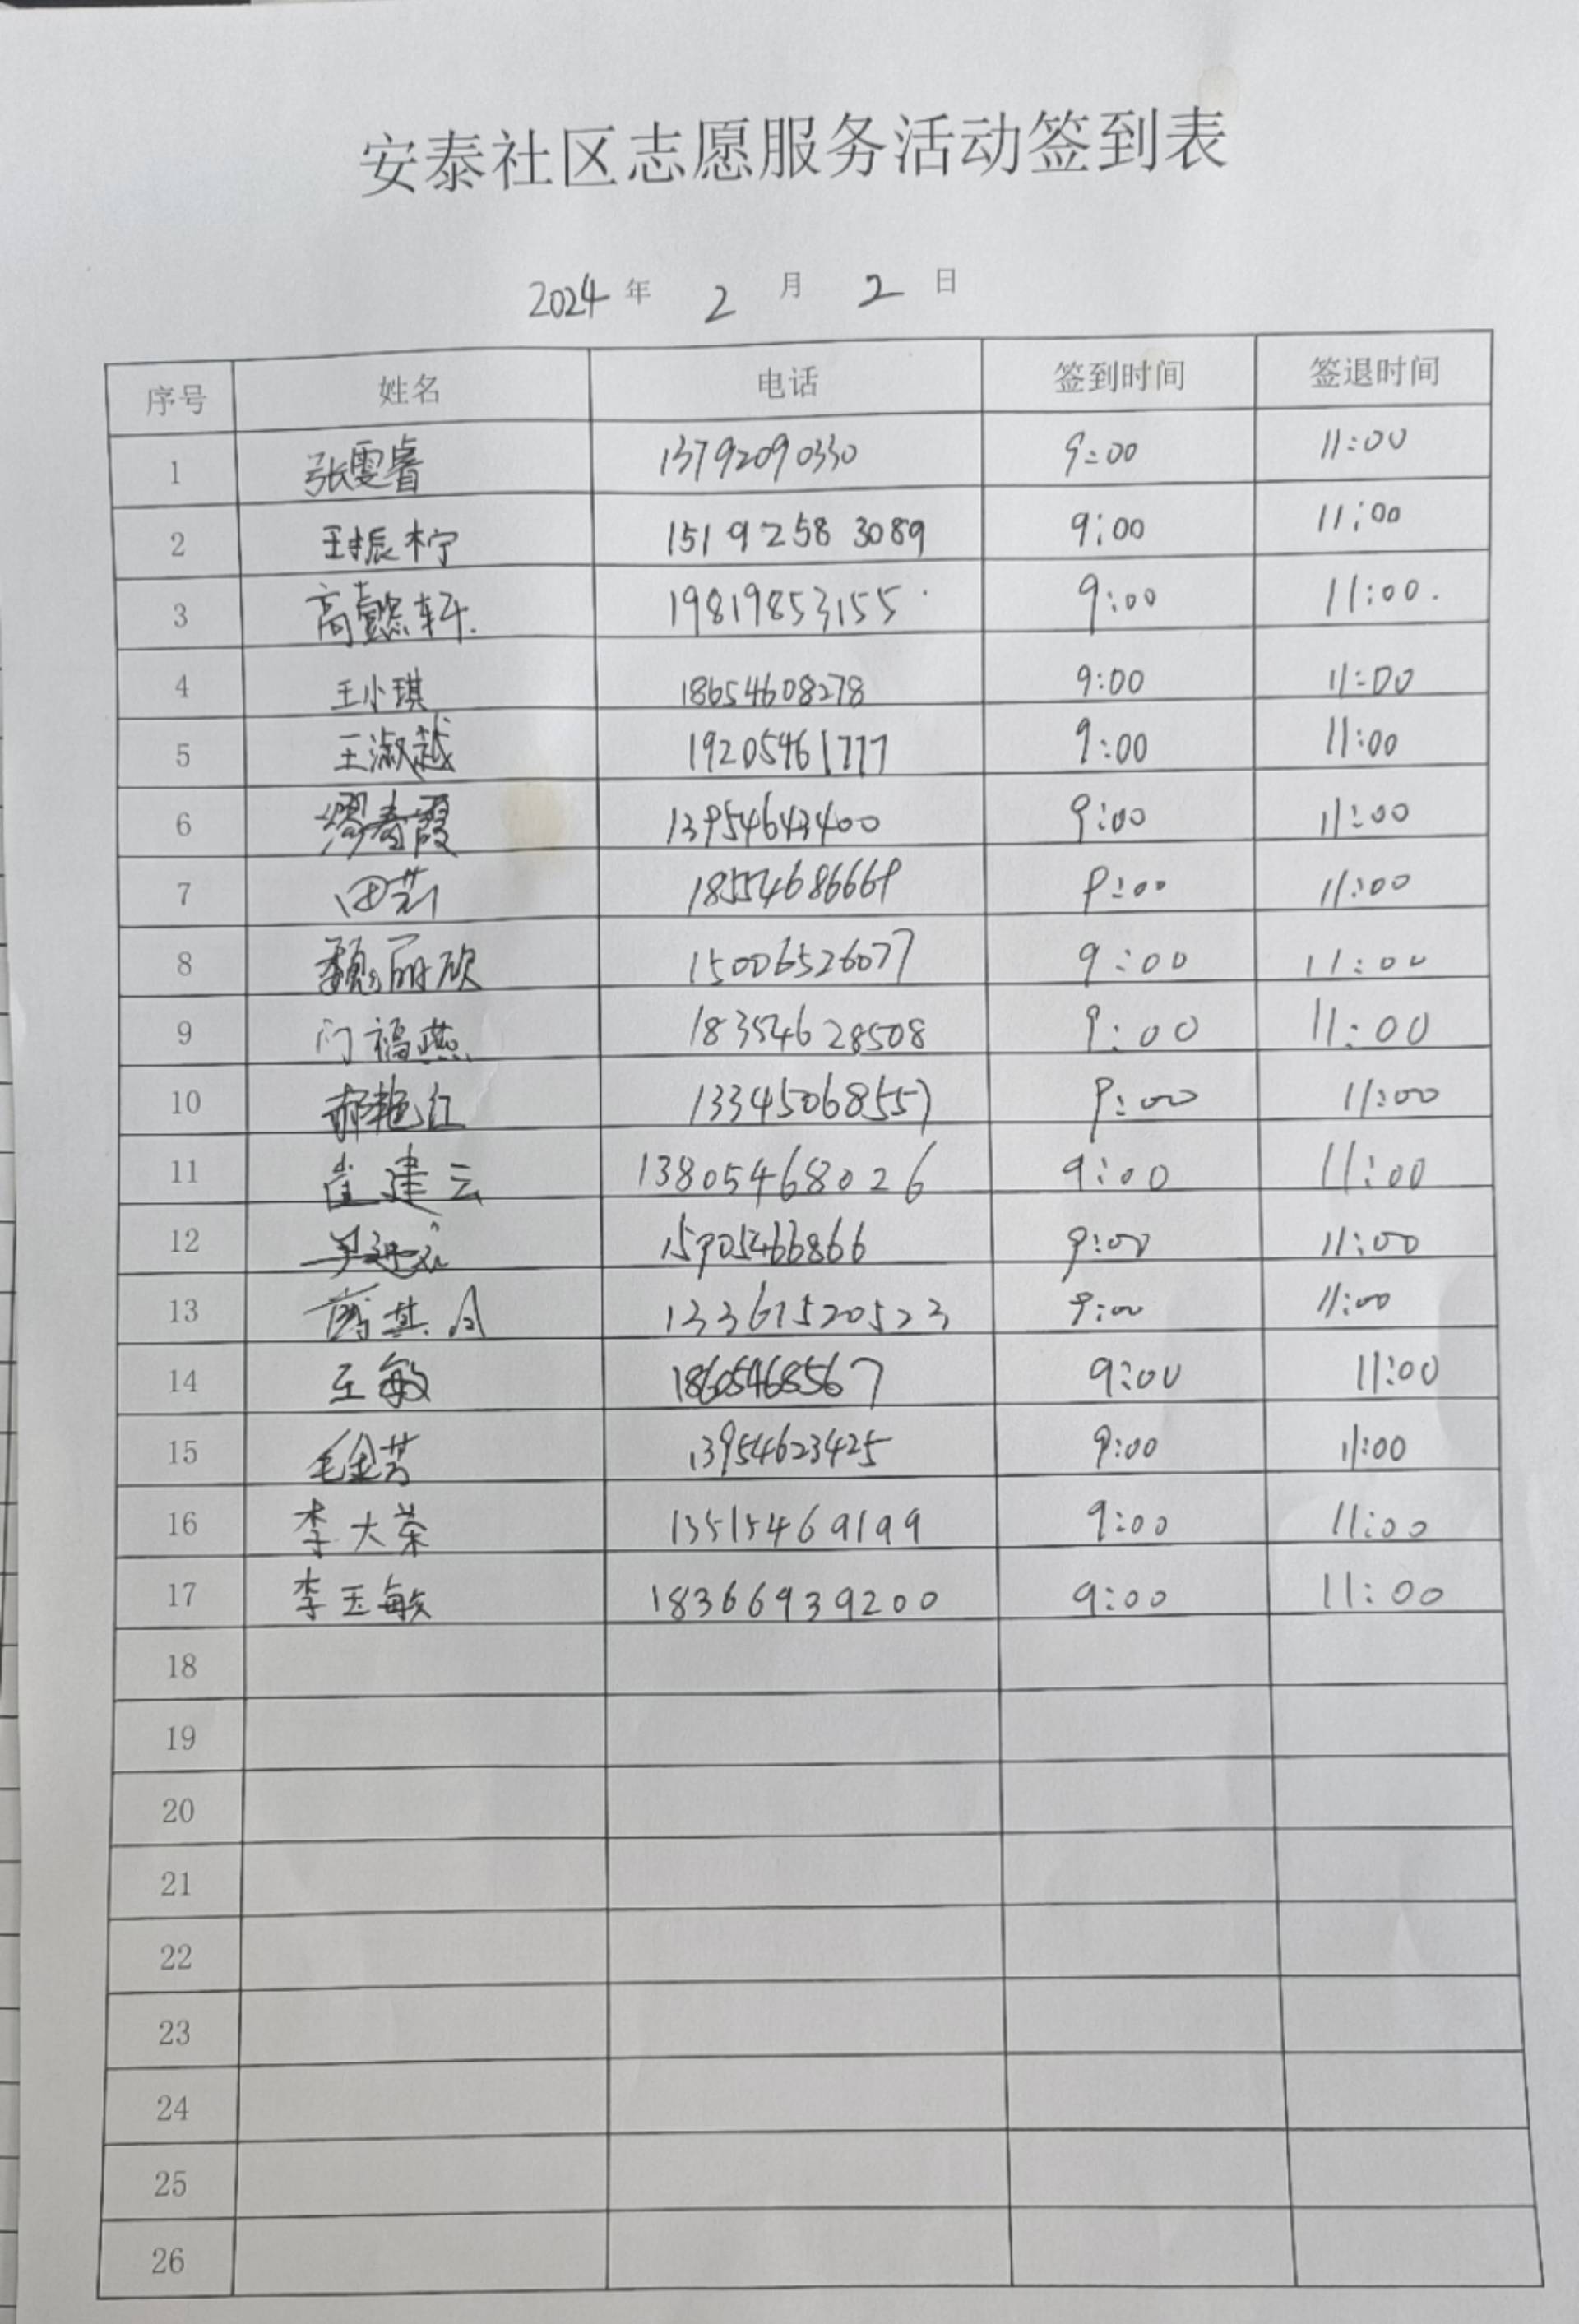 安泰社区志愿服务活动签到表
2024 年 2 月 2 日
序号 姓名 电话 签到时间 签退时间
1 张雯睿 13792090330 9:00 11:00
2 王振柠 15192583089 9:00 11:00
3 高懿轩. 19819853155 9:00 11:00.
4 王小琪 18654608278 9:00 11:00
5 王淑越 19205461777 9:00 11:00
6 13954643400 9:00 11:00
7 田芳 18554686669 9:00 11:00
8 魏丽欣 15006526077 9:00 11:00
9 门福燕 18354628508 9:00 11:00
10 郝艳红 13345068557 9:00 11:00
11 崔建云 13805468026 9:00 11:00
12 15905466866 9:00 11:00
13 13361520523 9:00 11:00
14 王敏 18605468567 9:00 11:00
15 毛金芳 13954623425 9:00 11:00
16 李大荣 13515469199 9:00 11:00
17 李玉敏 18366939200 9:00 11:00
18
19
20
21
22
23
24
25
26